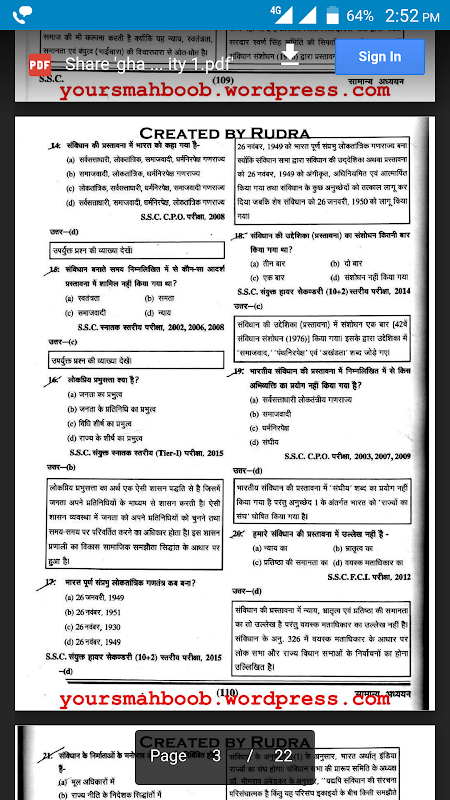 4G 64% 2:52 PM
समाज की भी कल्पना करती है क्योंकि यह न्याय, स्वतंत्रता,
समानता एवं बंधुत्व (भाईचारा) की विचारधारा से ओत-प्रोत है।
सरदार स्वर्ण सिंह समिति की
संविधान संशोधन (1976) द्वारा
PDF Share 'gha ... ity 1.pdf'
Sign In
S.S.C. (109) सामान्य अध्ययन
yoursmahboob.wordpress.com
CREATED BY RUDRA
14. संविधान की प्रस्तावना में भारत को कहा गया है-
(a) सर्वसत्ताधारी, लोकतांत्रिक, समाजवादी, धर्मनिरपेक्ष गणराज्य
(b) समाजवादी, लोकतांत्रिक, धर्मनिरपेक्ष गणराज्य
(c) लोकतांत्रिक, सर्वसत्ताधारी, धर्मनिरपेक्ष, समाजवादी गणराज्य
(d) सर्वसत्ताधारी, समाजवादी, धर्मनिरपेक्ष, लोकतांत्रिक गणराज्य
S.S.C. C.P.O. परीक्षा, 2008
उत्तर-(d)
उपर्युक्त प्रश्न की व्याख्या देखें।
15. संविधान बनाते समय निम्नलिखित में से कौन-सा आदर्श
प्रस्तावना में शामिल नहीं किया गया था?
(a) स्वतंत्रता (b) समता
(c) समाजवादी (d) न्याय
S.S.C. स्नातक स्तरीय परीक्षा, 2002, 2006, 2008
उत्तर-(c)
उपर्युक्त प्रश्न की व्याख्या देखें।
16. लोकप्रिय प्रभुसत्ता क्या है?
(a) जनता का प्रभुत्व
(b) जनता के प्रतिनिधि का प्रभुत्व
(c) विधि शीर्ष का प्रभुत्व
(d) राज्य के शीर्ष का प्रभुत्व
S.S.C. संयुक्त स्नातक स्तरीय (Tier-I) परीक्षा, 2015
उत्तर-(b)
लोकप्रिय प्रभुसत्ता का अर्थ एक ऐसी शासन पद्धति से है जिसमें
जनता अपने प्रतिनिधियों के माध्यम से शासन करती है। ऐसी
शासन व्यवस्था में जनता को अपने प्रतिनिधियों को चुनने तथा
समय-समय पर परिवर्तित करने का अधिकार होता है। इस शासन
प्रणाली का विकास सामाजिक समझौता सिद्धांत के आधार पर
हुआ है।
17. भारत पूर्ण संप्रभु लोकतांत्रिक गणतंत्र कब बना?
(a) 26 जनवरी, 1949
(b) 26 नवंबर, 1951
(c) 26 नवंबर, 1930
(d) 26 नवंबर, 1949
S.S.C. संयुक्त हायर सेकण्डरी (10+2) स्तरीय परीक्षा, 2015
-(d)
26 नवंबर, 1949 को भारत पूर्ण संप्रभु लोकतांत्रिक गणराज्य बना
क्योंकि संविधान सभा द्वारा संविधान की उद्देशिका अथवा प्रस्तावना
को 26 नवंबर, 1949 को अंगीकृत, अधिनियमित एवं आत्मार्पित
किया गया तथा संविधान के कुछ अनुच्छेदों को तत्काल लागू कर
दिया जबकि शेष संविधान को 26 जनवरी, 1950 को लागू किया
गया।
18. संविधान की उद्देशिका (प्रस्तावना) का संशोधन कितनी बार
किया गया था?
(a) तीन बार (b) दो बार
(c) एक बार (d) संशोधन नहीं किया गया
S.S.C. संयुक्त हायर सेकण्डरी (10+2) स्तरीय परीक्षा, 2014
उत्तर-(c)
संविधान की उद्देशिका (प्रस्तावना) में संशोधन एक बार [42वें
संविधान संशोधन (1976)] किया गया। इसके द्वारा उद्देशिका में
'समाजवाद,' 'पंथनिरपेक्ष' एवं 'अखंडता' शब्द जोड़े गए।
19. भारतीय संविधान की प्रस्तावना में निम्नलिखित में से किस
अभिव्यक्ति का प्रयोग नहीं किया गया है?
(a) सर्वसत्ताधारी लोकतंत्रीय गणराज्य
(b) समाजवादी
(c) धर्मनिरपेक्ष
(d) संघीय
S.S.C. C.P.O. परीक्षा, 2003, 2007, 2009
उत्तर-(d)
भारतीय संविधान की प्रस्तावना में 'संघीय' शब्द का प्रयोग नहीं
किया गया है परंतु अनुच्छेद 1 के अंतर्गत भारत को 'राज्यों का
संघ' घोषित किया गया है।
20. हमारे संविधान की प्रस्तावना में उल्लेख नहीं है -
(a) न्याय का (b) भ्रातृत्व का
(c) प्रतिष्ठा की समानता का (d) वयस्क मताधिकार का
S.S.C. F.C.I. परीक्षा, 2012
उत्तर-(d)
संविधान की प्रस्तावना में न्याय, भ्रातृत्व एवं प्रतिष्ठा की समानता
का तो उल्लेख है परंतु वयस्क मताधिकार का उल्लेख नहीं है।
संविधान के अनु. 326 में वयस्क मताधिकार के आधार पर
लोक सभा और राज्य विधान सभाओं के निर्वाचनों का होना
उल्लिखित है।
S.S.C. (110) सामान्य अध्ययन
yoursmahboob.wordpress.com
CREATED BY RUDRA
21. संविधान के निर्माताओं के
है-
(a) मूल अधिकारों में
(b) राज्य नीति के निदेशक सिद्धांतों में
के अनुसार, भारत अर्थात् इंडिया
राज्यों का संघ होगा। संविधान सभा की प्रारूप समिति के अध्यक्ष
डॉ. भीमराव अंबेडकर के अनुसार, "यद्यपि संविधान की संरचना
परिसंघात्मक है किंतु यह परिसंघ इकाइयों के बीच किसी समझौते
Page 3 / 22